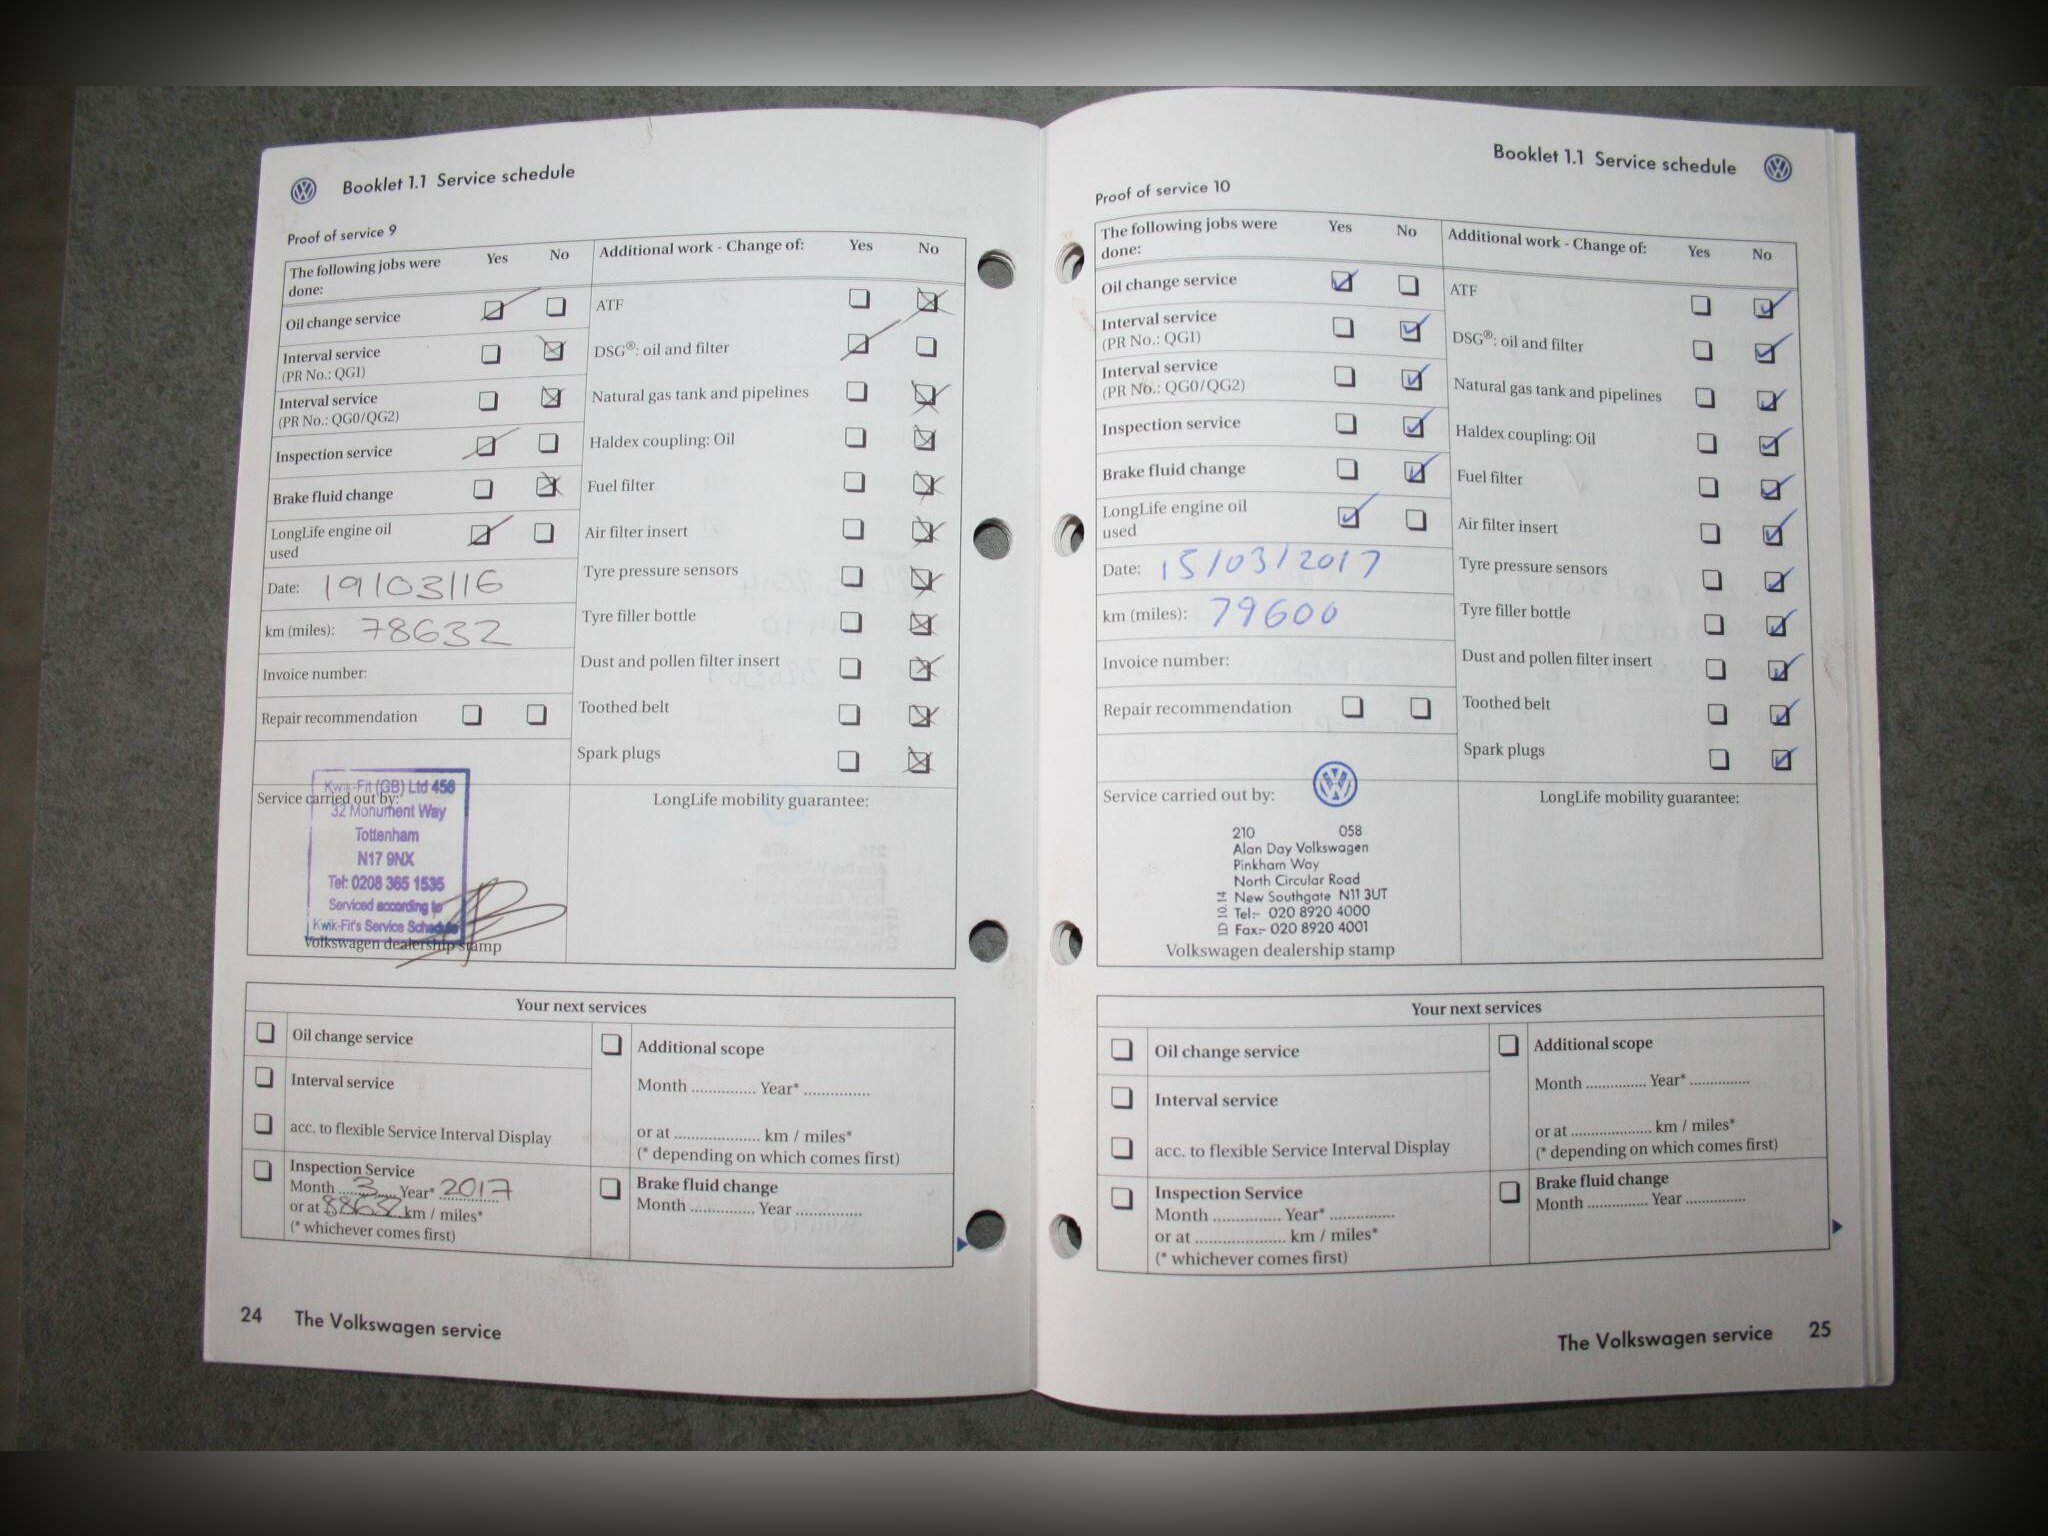 Booklet 1.1 Service schedule
Proof of service 9
The following jobs were done: Yes No
Oil change service
Interval service
(PR No.: QG1)
Interval service
(PR No.: QG0/QG2)
Inspection service
Brake fluid change
LongLife engine oil
used
Date: 19/03/16
km (miles): 78632
Invoice number:
Repair recommendation
Additional work - Change of: Yes No
ATF
DSG®: oil and filter
Natural gas tank and pipelines
Haldex coupling: Oil
Fuel filter
Air filter insert
Tyre pressure sensors
Tyre filler bottle
Dust and pollen filter insert
Toothed belt
Spark plugs
Service carried out by:
Kwik-Fit (GB) Ltd 456
32 Monument Way
Tottenham
N17 9NX
Tel: 0208 365 1535
Serviced according to
Kwik-Fit's Service Schedule
Volkswagen dealership stamp
LongLife mobility guarantee:
Your next services
Oil change service
Interval service
acc. to flexible Service Interval Display
Inspection Service
Month 3 Year* 2017
or at 88632 km / miles*
(* whichever comes first)
Additional scope
Month .............. Year* ..............
or at .................... km / miles*
(* depending on which comes first)
Brake fluid change
Month .............. Year ..............
24 The Volkswagen service
Booklet 1.1 Service schedule
Proof of service 10
The following jobs were done: Yes No
Oil change service
Interval service
(PR No.: QG1)
Interval service
(PR No.: QG0/QG2)
Inspection service
Brake fluid change
LongLife engine oil
used
Date: 15/03/2017
km (miles): 79600
Invoice number:
Repair recommendation
Additional work - Change of: Yes No
ATF
DSG®: oil and filter
Natural gas tank and pipelines
Haldex coupling: Oil
Fuel filter
Air filter insert
Tyre pressure sensors
Tyre filler bottle
Dust and pollen filter insert
Toothed belt
Spark plugs
Service carried out by:
210 058
Alan Day Volkswagen
Pinkham Way
North Circular Road
New Southgate N11 3UT
Tel:- 020 8920 4000
Fax:- 020 8920 4001
ID 10.14
Volkswagen dealership stamp
LongLife mobility guarantee:
Your next services
Oil change service
Interval service
acc. to flexible Service Interval Display
Inspection Service
Month .............. Year* ..............
or at .................... km / miles*
(* whichever comes first)
Additional scope
Month .............. Year* ..............
or at .................... km / miles*
(* depending on which comes first)
Brake fluid change
Month .............. Year ..............
The Volkswagen service 25